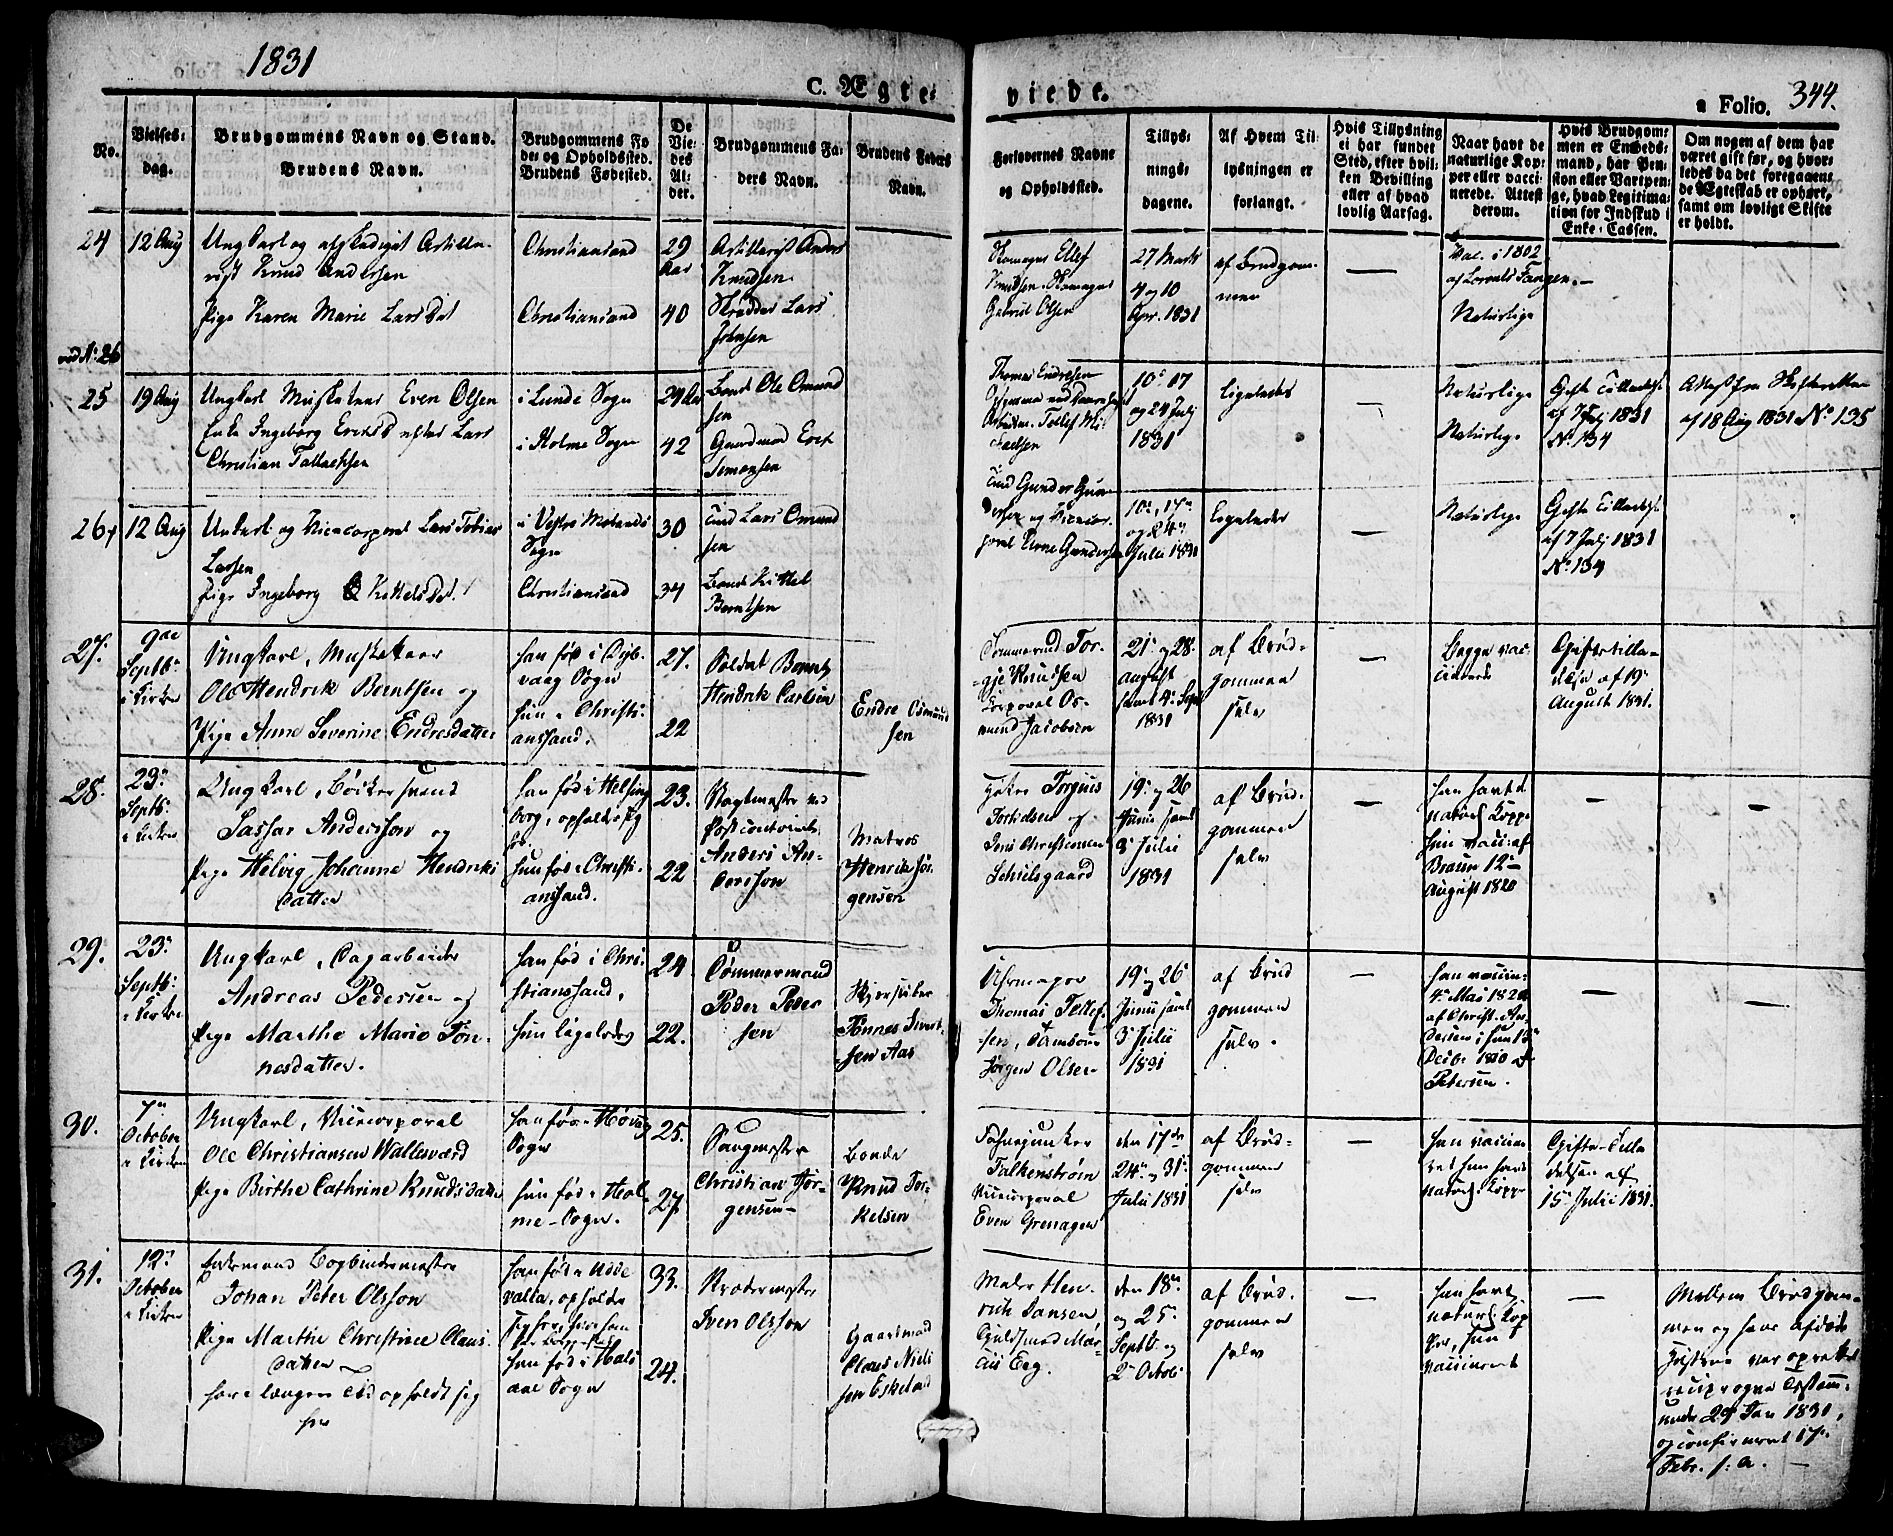 1831
C. Ægte=
viede.
a Folio. 344.
No.
Vielses=
dag.
Brudgommens Navn og Stand.
Brudens Navn.
Brudgommens Fø
de= og Opholdssted.
Brudens Fødested.
De
Vie=
des
Al=
der.
Brudgommens Fa=
ders Navn.
Brudens Faders
Navn.
Forlovernes Navne
og Opholdssted.
Tillys=
nings=
dagene.
Af Hvem Til=
lysningen er
forlangt.
Hvis Tillysning
ei har fundet
Sted, efter hvil=
ken Bevilling
eller af hvad
lovlig Aarsag.
Naar havt de
naturlige Kop=
per eller vacci=
nerede. Attest
derom.
Hvis Brudgom=
men er Embeds=
mand, har Pen=
sion eller Vartpen=
ge, hvad Legitima=
tion for Indskud i
Enke=Cassen.
Om nogen af dem har
været gift før, og hvor=
ledes da det foregaaen=
de Ægteskab er ophørt,
samt om lovligt Skifte
er holdt.
24
12 Aug
Ungkarl og afskediget Artille=
rist Knud Andersen
Pige Karen Marie Larsdat
Christiansand
Christiansand
29
Aar
40
Artillerist Anders
Knudsen
Skrædder Lars
Johnsen
Ellef
Knudsen
Gabriel Olsen
27 Marts
4 og 10
Apr. 1831
af Brudgom=
men
Vac. i 1802
Naturlige
ved No 26
25
19 Aug
Ungkarl Musketeer Even Olsen
Enke Ingeborg Ericsd efter Lars
Christian Tallachsen
i Lunde Sogn
i Holme Sogn
29 Aar
42
Bonde Ole Omund
sen
Gundmod Erik
Simonsen
Thomas Endresen
Tellef Mi
chaelsen
10, 17
og 24 July
1831
Ligeledes
Naturlige
Naturlige
Gifte Tilladelse
af 7 July 1831
No 134
Attest fra Skifteretten
af 18 Aug 1831 No 135
26
12 Aug
Unkarl og Vicecorporal Lars Tobias
Larsen
Pige Ingeborg Kittelsdat.
Sogn
Christiansand
30
34
Lars Omund
sen
Bonde Kittel
Berntsen
Gunder Gun
dersen og Vicecor=
poral Gundersen
10, 17
og 24
Julii 1831
Ligeledes
Naturlige
Gifte Tilladelse
af 7 July 1831
No 134
27.
9de
Septbr
i Kirken
Ungkarl, Musketeer
Ole Hendrik Berntsen og
Pige Anne Severine Endresdatter
han fød i
vaag Sogn
hun i Christi=
anssand.
27.
22
Soldat Berent
Hendrik Carlsen
Endre Osmund
sen
Tommermd Tor=
gje Knudsen
Corporal Os=
mund Jacobsen
21. og 28.
August
samt 4. Sept
1831
af Brud=
gommen
selv
Begge vac=
cinerede
Giftetilla=
delse af 19
August 1831.
28.
23.
Septb:
i Kirken
Ungkarl, Bødkersvend
Lassar Andersson og
Pige Helvig Johanne Hendriks
datter
han fød i Helsing
borg, opholdt sig
her
hun fød i Christi=
anssand.
23.
22
Vagtmester ved
Postcontoiret
Anders An=
dersson
Matros
Henrik Jør=
gensen
Torgius
Torkildsen og
Jens Christensen
Schielsgaard
19. og 26
Junii samt
3 Julii
1831
af Brud=
gommen
selv
han havt d
naturl. Kopp.
hun vacc: af
Braun 12
August 1820
29.
23.
Septb:
i Kirken
Ungkarl, Dagarbeider
Andreas Pedersen og
Pige Marthe Marie Tøn=
nesdatter.
han fød i Chri=
stianssand,
hun ligeledes
24
22.
Tømmermand
Peder Peder
sen
Tønnes Sivert
sen Aas
Uhrmager
Thomas Tellef=
sen, Tambour
Jørgen Olsen
19. og 26.
Junii samt
3 Julii
1831
af Brud
gommen
selv.
han vaccin:
4. Mai 1820
af Christ. An=
dersen, hun 15
Decbr. 1810 af
Petersen.
30.
7de
October
i Kirken
Ungkarl, Vicecorporal
Ole Christiansen Wallesværd
Pige Birthe Cathrine Knudsdatter
han fød i Høvåg
Sogn
hun fød i Hol=
me-Sogn.
25.
27.
Saugmester
Christian Jør=
gensen
Bonde
Knud Ter=
kelsen
Fahnejunker
Falkenstrøm
Vicecorporal
Even Grenagen
den 17de
24de og 31.
Julii 1831
af Brud=
gommen
selv
han vaccine=
ret hun havt
naturl: Kopper
Gifte-Tilla
delse af
15. Julii 1831.
31.
12.
October
i Kirken
Enkemand Bogbindermester
Johan Peter Olsson
Pige Marthe Christine Claus=
datter
have længere Tid opholdt sig
her
han fød i Udde
valla, opholder
sig her
hun fød i Hals
aae Sogn
33.
24.
Krodermester
Sven Olsson
Gaardmand
Claus Niels
sen Eskeland
Maler Hen=
rich Jansen
Guldsmed Mar=
cus Eeg.
den 18de
og 25.
Septb. og
2. Octob:
af Brud=
gommen
selv
han havt
naturl. Kop
per, hun
vaccineret
Mellem Brudgom=
men og hans afdøde
Hustrue var oprettet
reciproqve Testam=
ente 29 Jan 1831,
og confirmeret 17.
Febr. s: a.